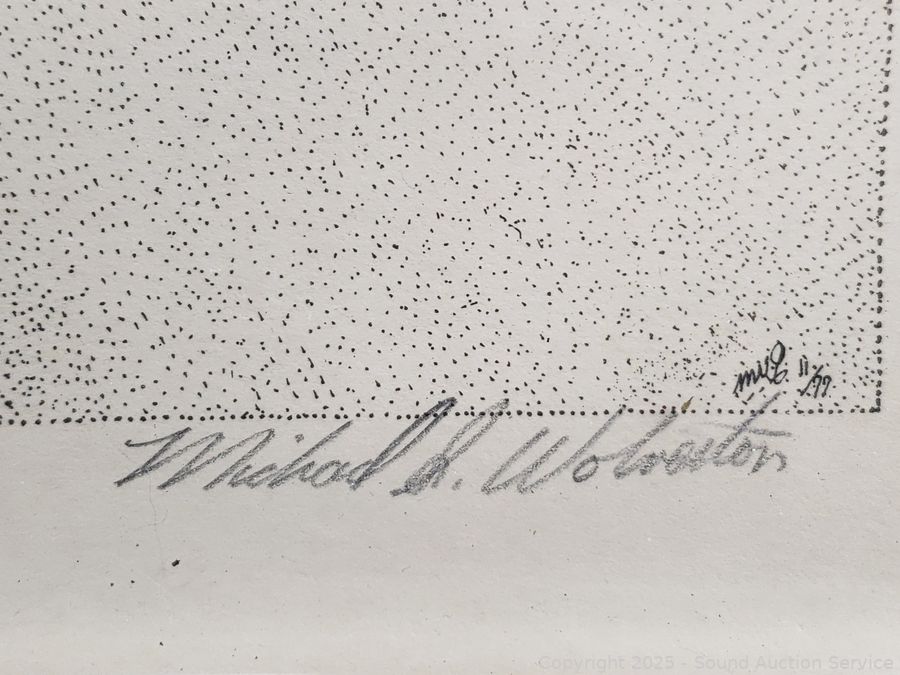 11/77
Michael S. Wolverton
Copyright 2025 - Sound Auction Service